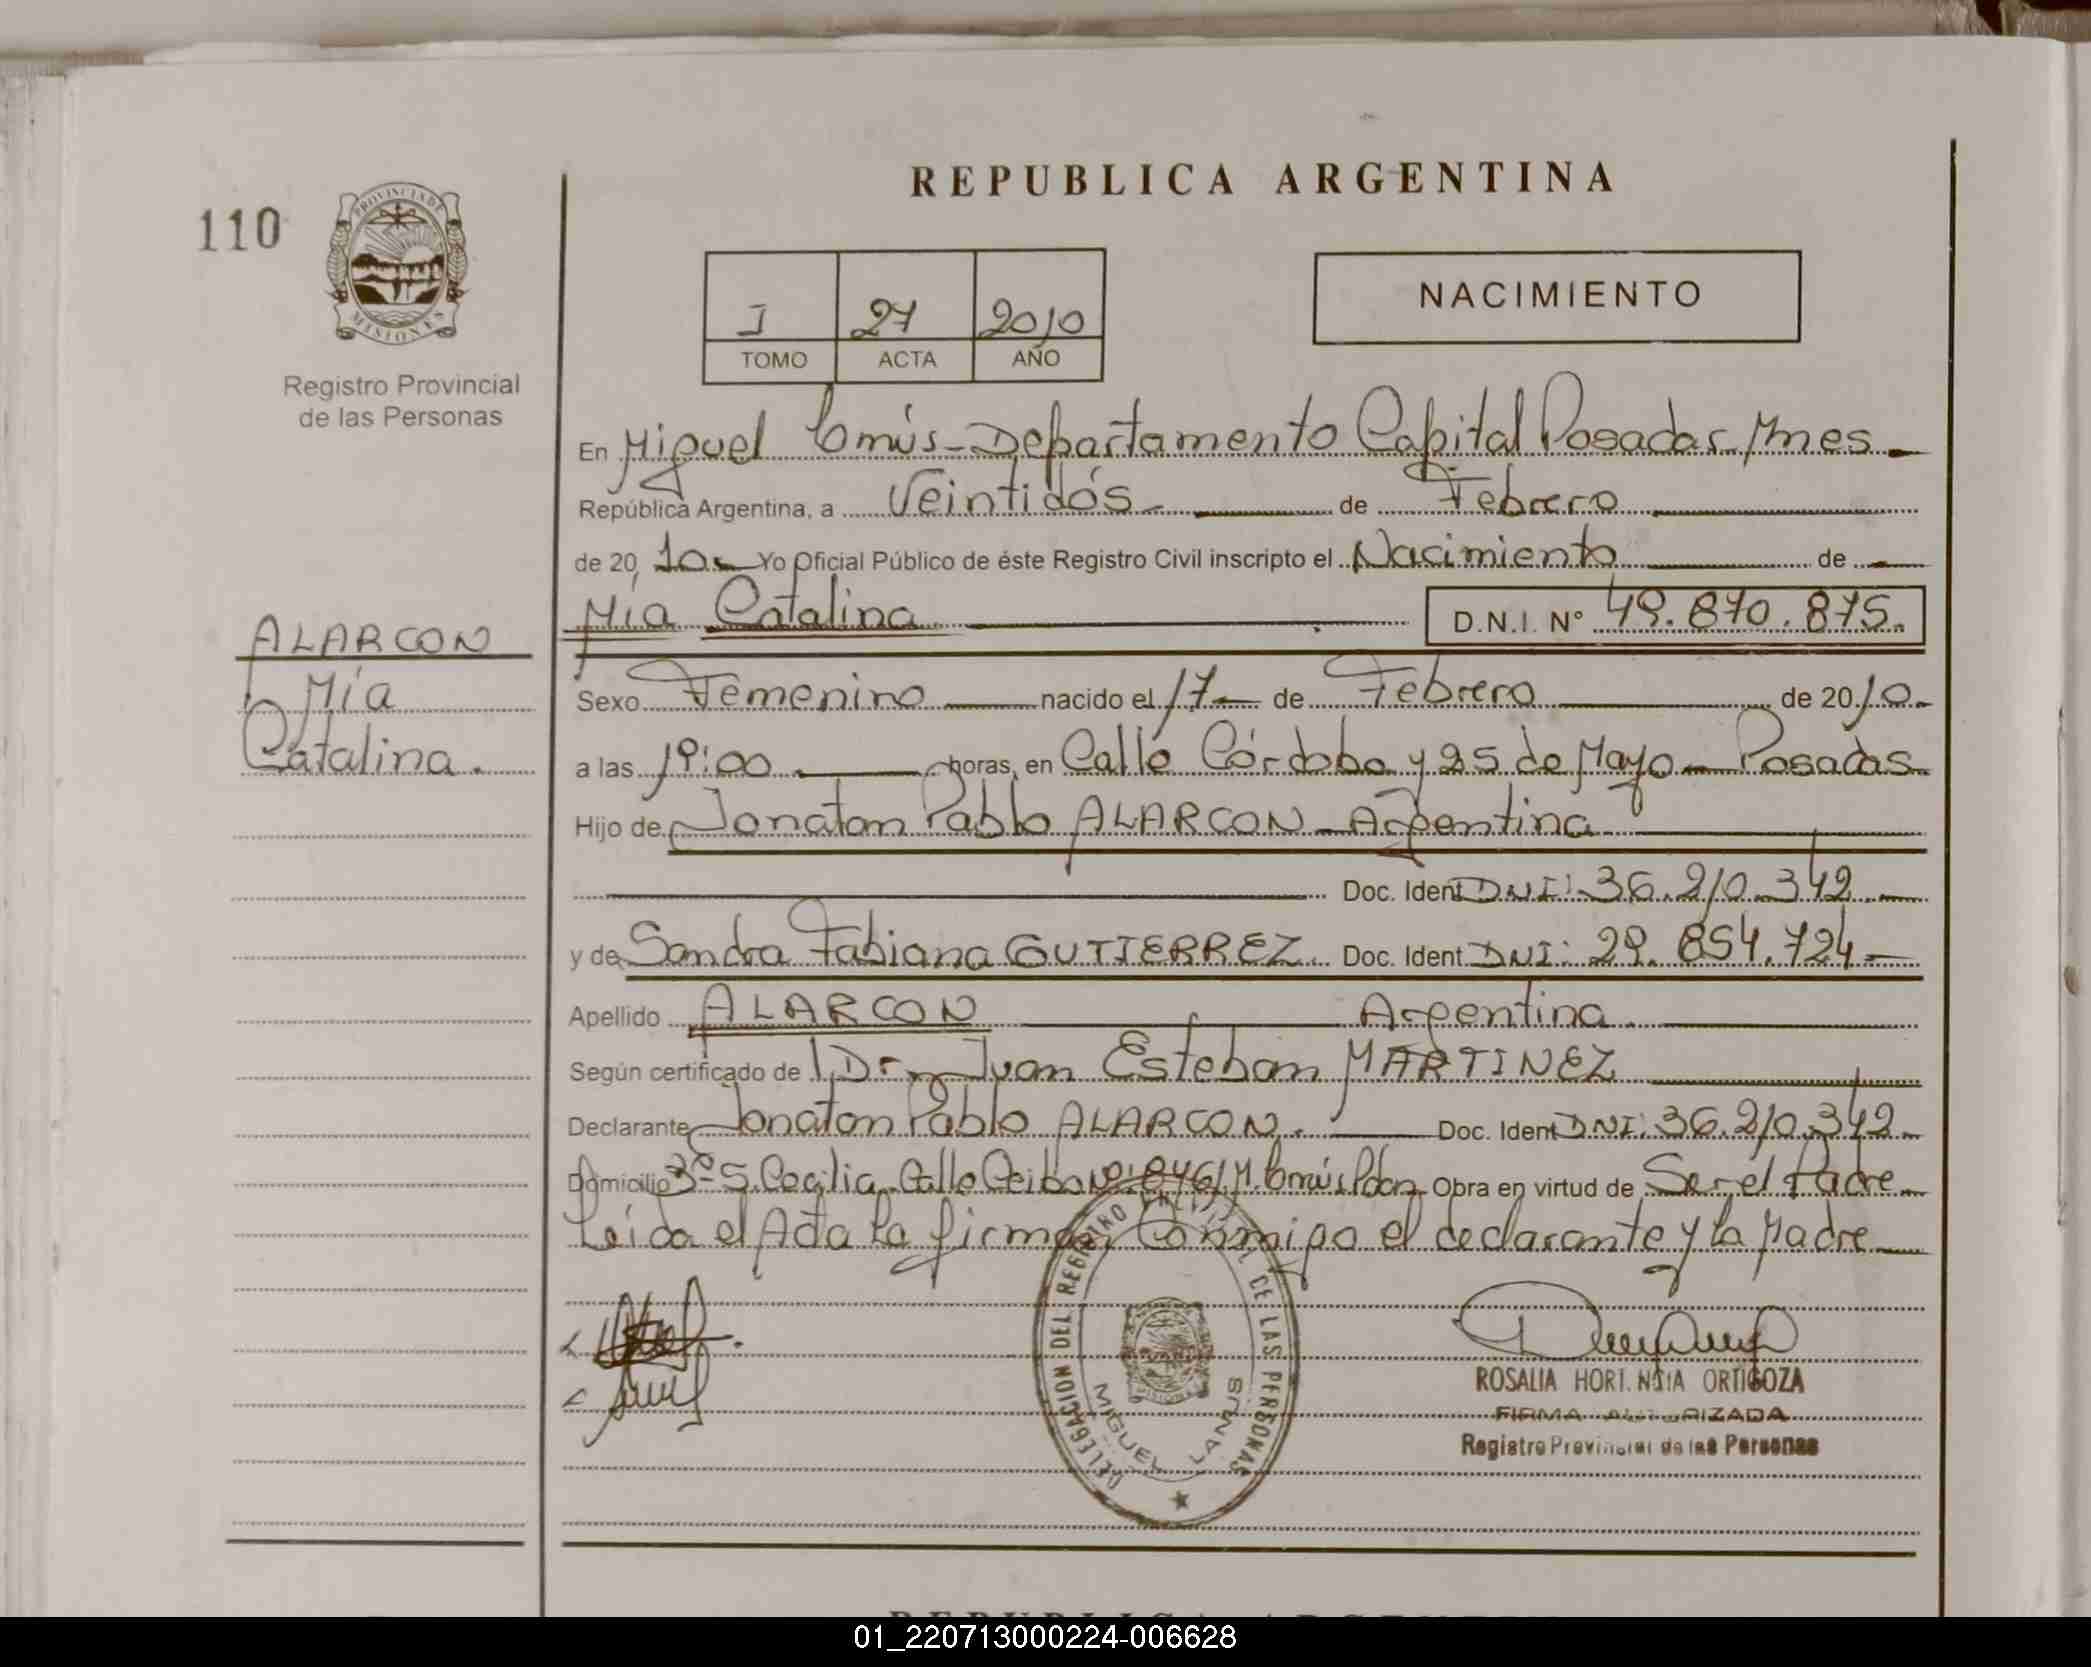 REPUBLICA ARGENTINA
110
PROVINCIA DE
MISIONES
Registro Provincial
de las Personas
NACIMIENTO
I 27 2010
TOMO ACTA AÑO
En Miguel Lanús - Departamento Capital Posadas Mnes
República Argentina, a Veintidós de Febrero
de 20 10 Yo Oficial Público de éste Registro Civil inscripto el Nacimiento de
Mía Catalina D.N.I. N° 49.870.875.
ALARCON
Mía
Catalina.
Sexo Femenino nacido el 17 de Febrero de 2010.
a las 19:00 horas, en Calle Córdoba y 25 de Mayo - Posadas
Hijo de Jonatan Pablo ALARCON - Argentina
Doc. Ident DNI: 36.210.342
y de Sandra Fabiana GUTIERREZ. Doc. Ident DNI: 29.854.724
Apellido ALARCON Argentina
Según certificado de Dr. Juan Esteban MARTINEZ
Declarante Jonatan Pablo ALARCON. Doc. Ident DNI: 36.210.342
Domicilio S. Cecilia Calle Ceibo Nº: 846 M. Lanús Obra en virtud de Ser el Padre
Leída el Acta la firman Conmigo el declarante y la Madre
DELEGACION DEL REGISTRO DE LAS PERSONAS
MIGUEL LANUS
ROSALIA HORTENSIA ORTIGOZA
FIRMA AUTORIZADA
Registro Provincial de las Personas
REPUBLICA ARGENTINA
01_220713000224-006628